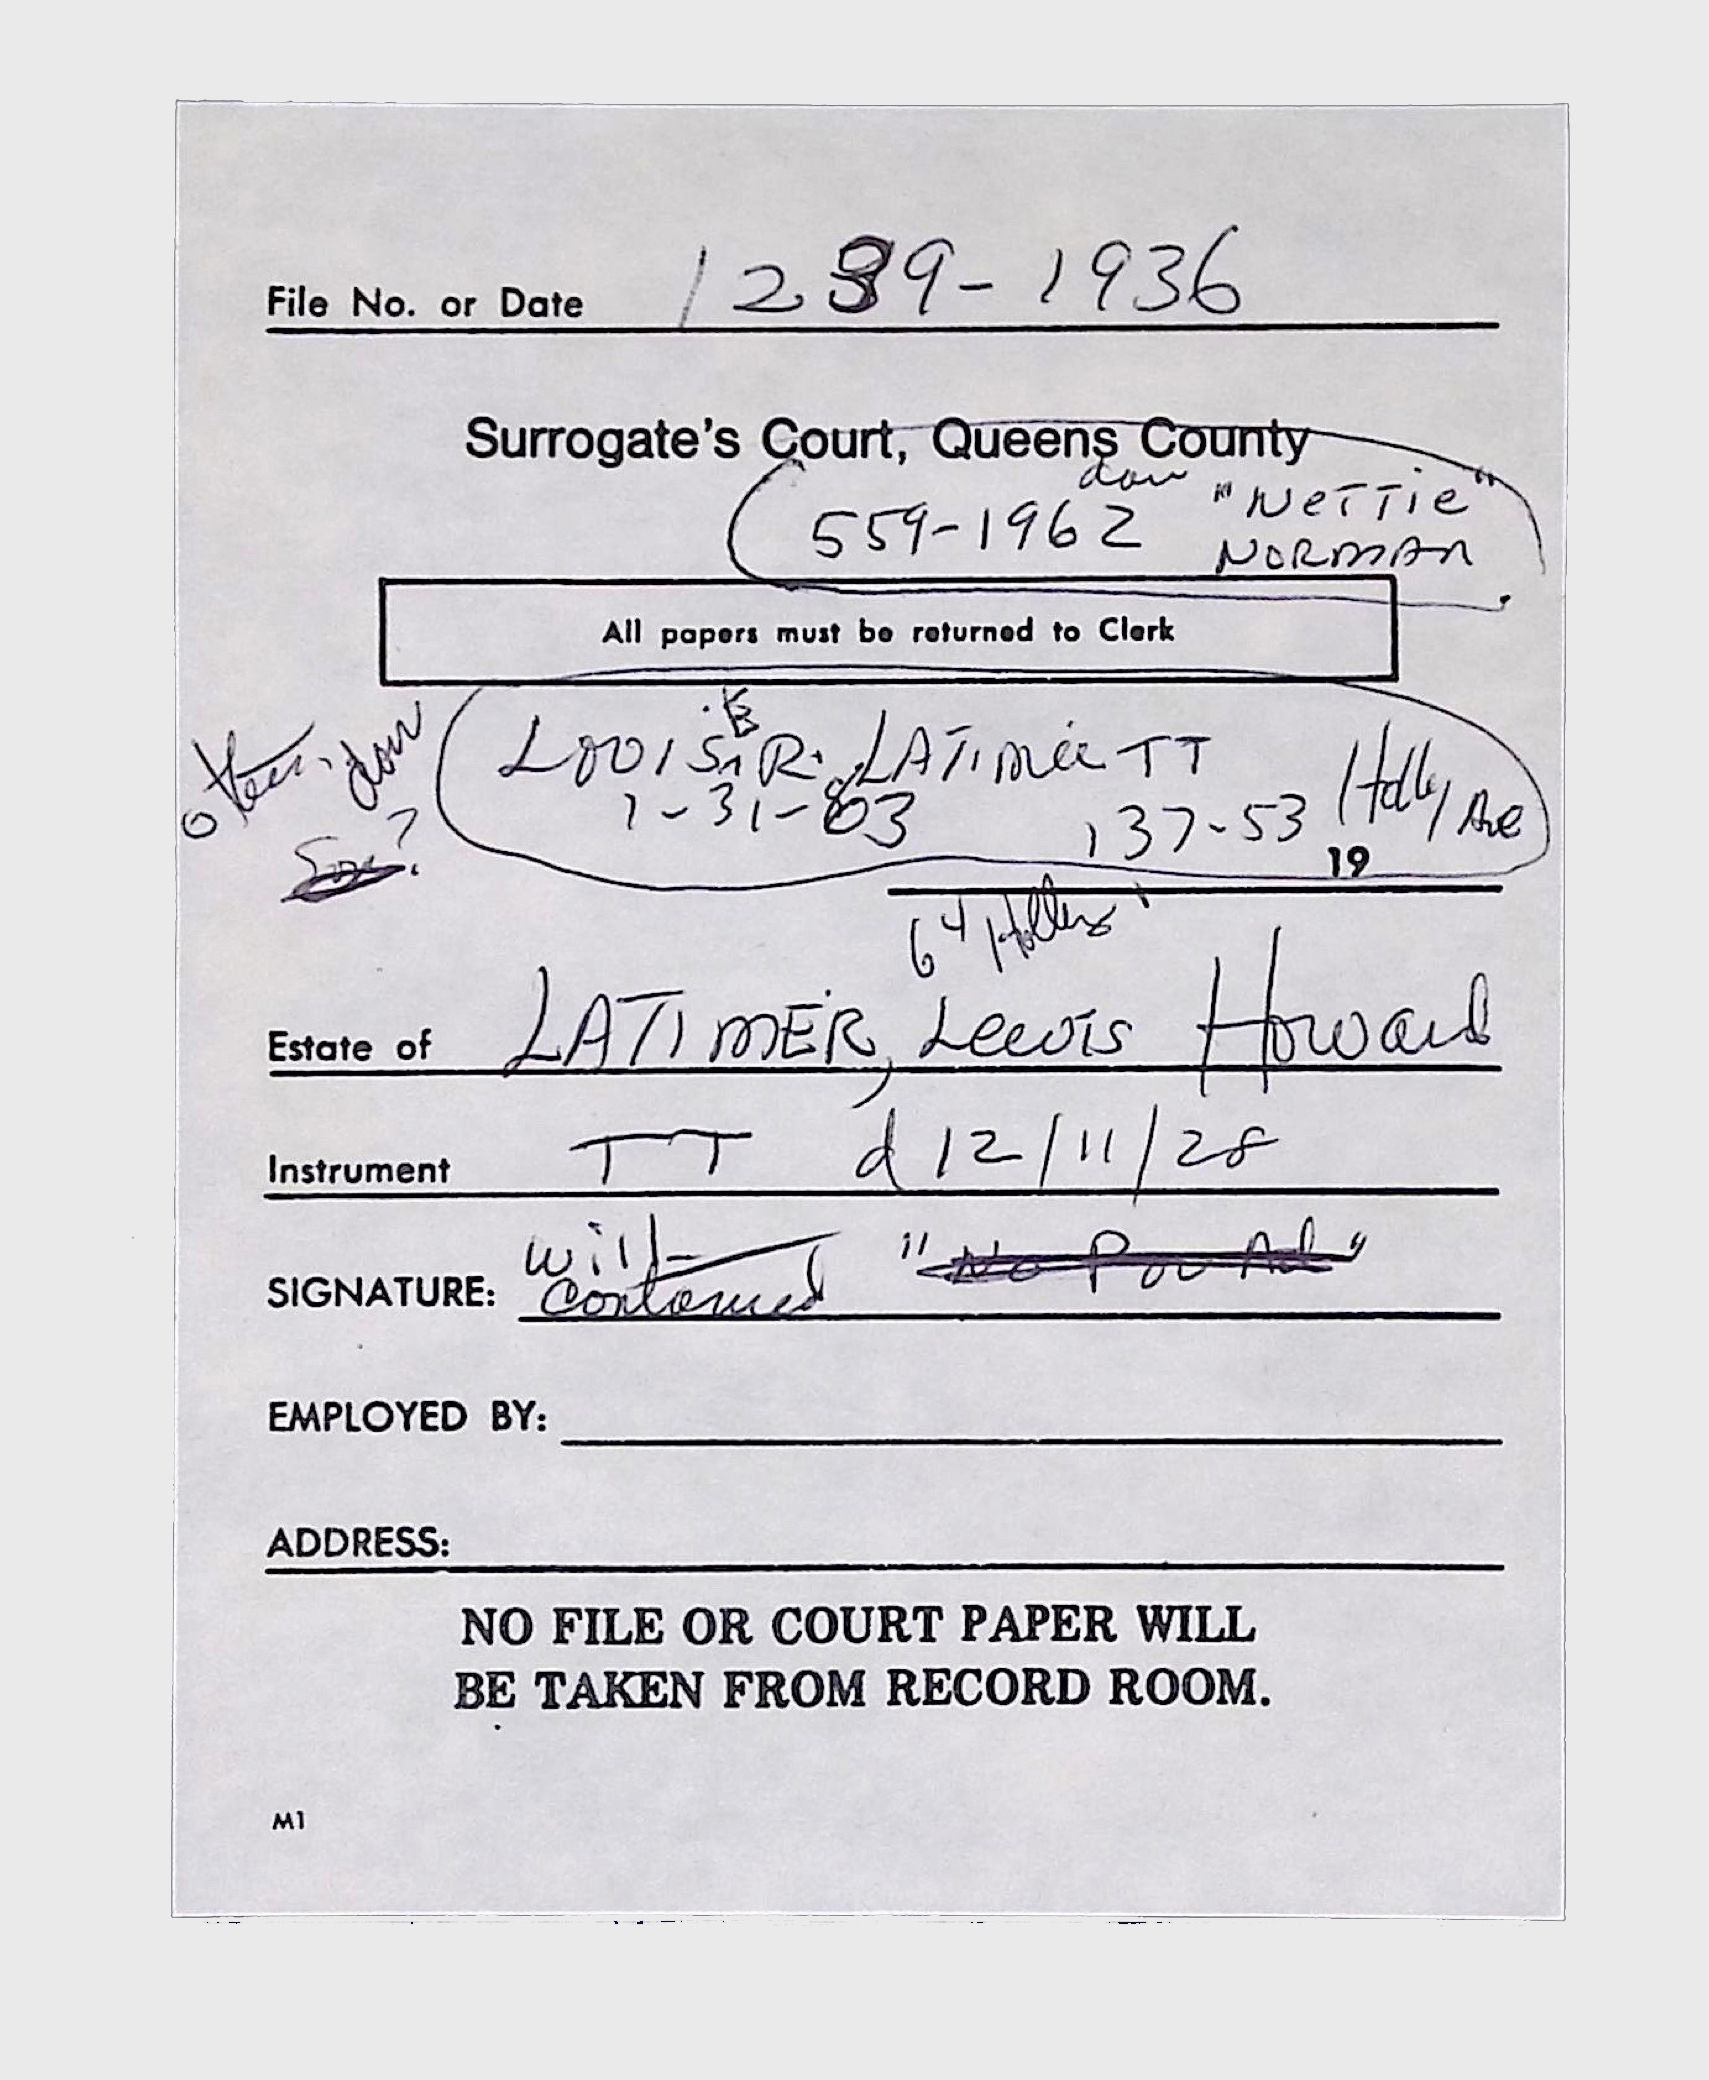 File No. or Date 1289-1936
Surrogate's Court, Queens County
dau "NETTIE"
559-1962 NORMAN
All papers must be returned to Clerk
other dau
Son?
LOUISE R. LATIMER TT
1-31-83 137-53 Holly Ave
19
64 Holly
Estate of LATIMER, Lewis Howard
Instrument TT d 12/11/28
will
SIGNATURE: "No"
EMPLOYED BY:
ADDRESS:
NO FILE OR COURT PAPER WILL
BE TAKEN FROM RECORD ROOM.
M1